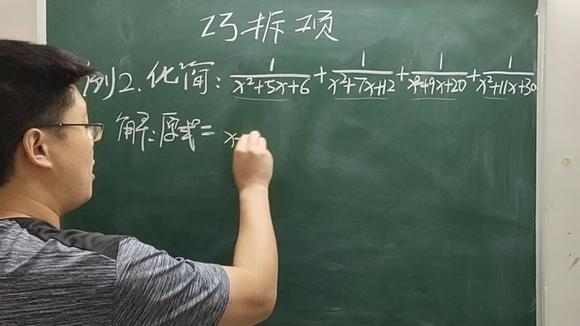 巧拆项
例2.化简: 1/(x²+5x+6) + 1/(x²+7x+12) + 1/(x²+9x+20) + 1/(x²+11x+30)
解:原式= x